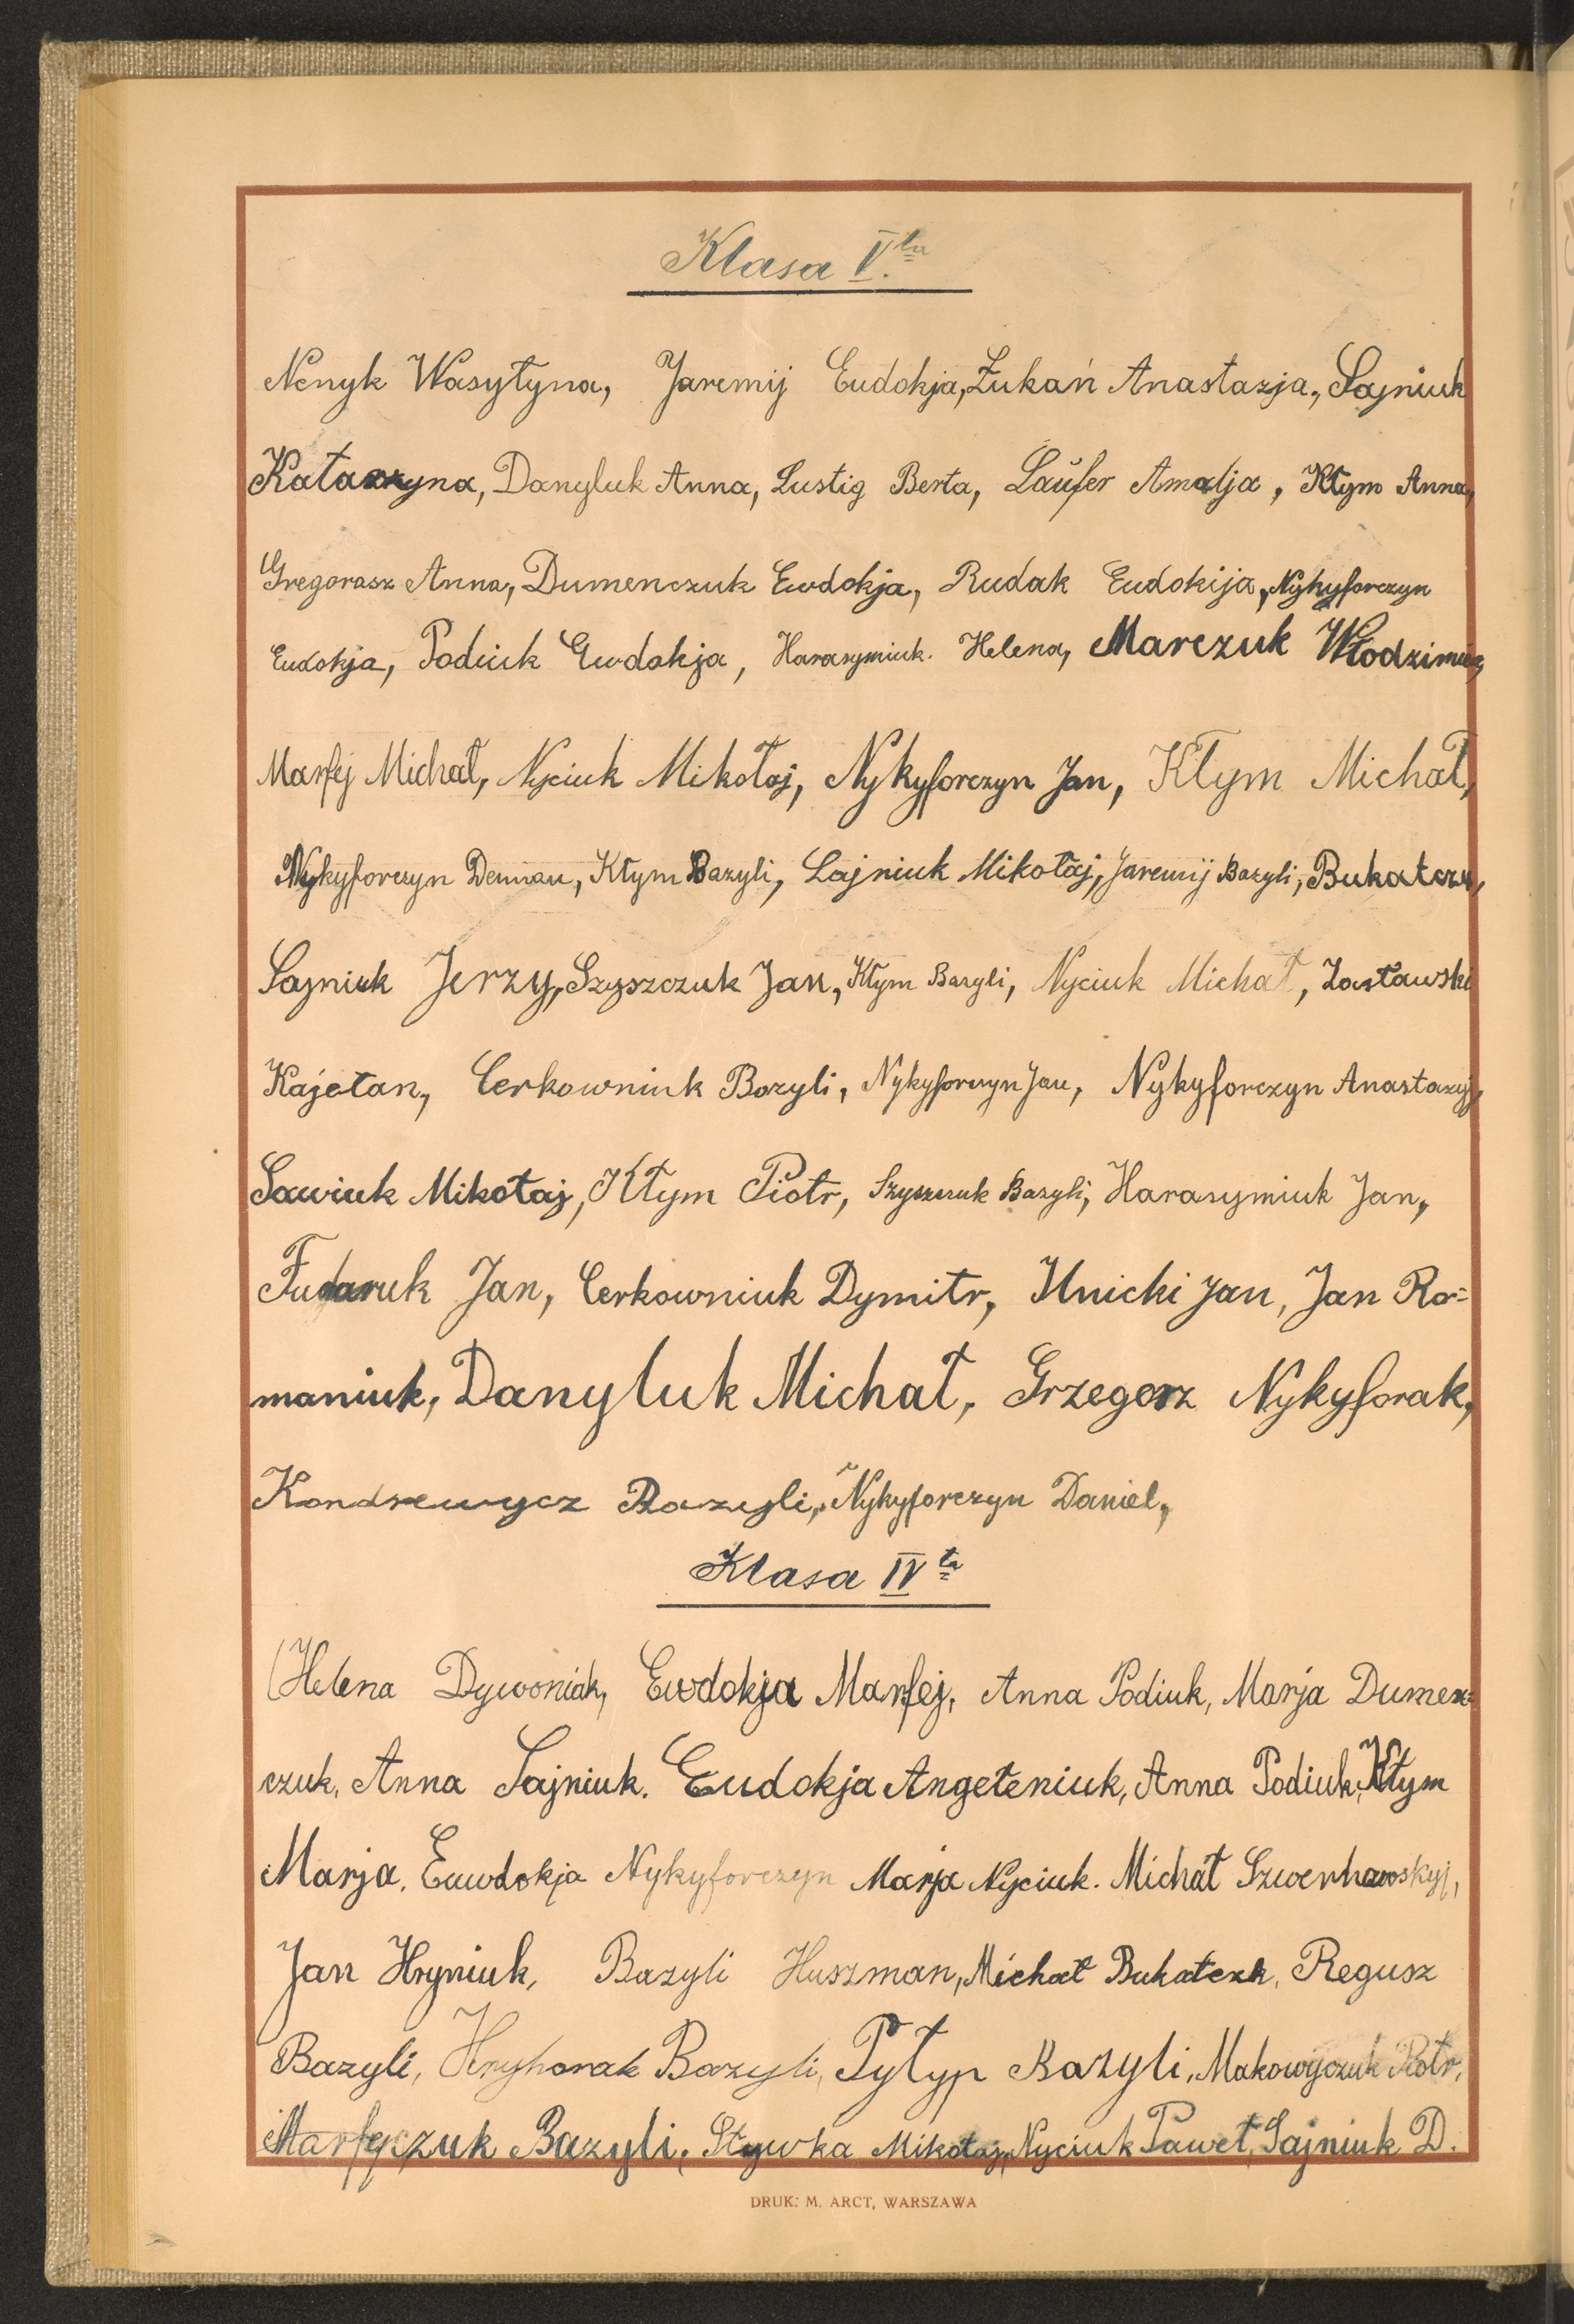 Klasa V.ta
Nenyk Wasyłyna, Jaremij Eudokja, Łukań Anastazja, Sajniuk
Katarzyna, Danyluk Anna, Lustig Berta, Laufer Amalja, Kłym Anna,
Gregorasz Anna, Dumenczuk Ewdokja, Rudak Eudokija, Nykyforczyn
Eudokja, Podiuk Ewdokja, Harasymiuk. Helena, Marczuk Włodzimierz,
Marfej Michał, Nyciuk Mikołaj, Nykyforczyn Jan, Kłym Michał,
Nykyforczyn Demian, Kłym Bazyli, Sajniuk Mikołaj, Jaremij Bazyli, Bukatczu,
Sajniuk Jerzy, Szyszczuk Jan, Kłym Bazyli, Nyciuk Michał, Zasławski
Kajetan, Cerkowniuk Bazyli, Nykyforczyn Jan, Nykyforczyn Anastazyj,
Sawiuk Mikołaj, Kłym Piotr, Szyszczuk Bazyli, Harasymiuk Jan,
Fudaruk Jan, Cerkowniuk Dymitr, Ilnicki Jan, Jan Ro=
maniuk, Danyluk Michał, Grzegorz Nykyforak,
Kondrewycz Bazyli, Nykyforczyn Daniel,
Klasa IV ta
Helena Dywoniak, Ewdokja Marfej, Anna Podiuk, Marja Dumen=
czuk, Anna Sajniuk. Eudokja Angeteniuk, Anna Podiuk, Kłym
Marja, Euwdokja Nykyforczyn Marja Nyciuk. Michał Szwerhawskyj,
Jan Hryniuk, Bazyli Huszman, Michał Bukatczk, Regusz
Bazyli, Hryhorak Bazyli, Pyłyp Bazyli, Makowyczuk Piotr,
Marfyczuk Bazyli, Stywka Mikołaj, Nyciuk Paweł, Sajniuk D.
DRUK: M. ARCT, WARSZAWA